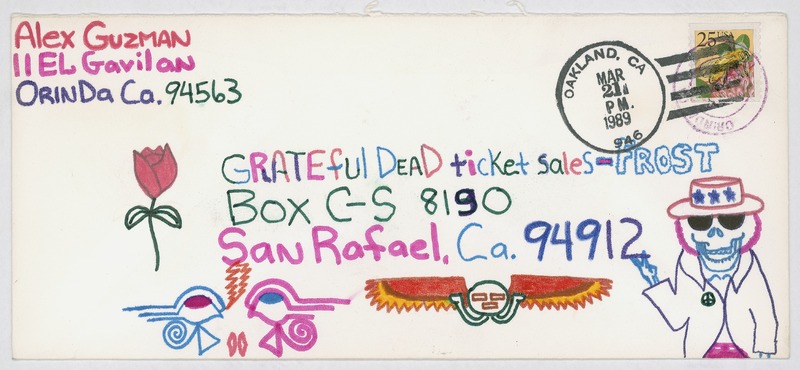 Alex Guzman
11 EL Gavilan
Orinda Ca. 94563
OAKLAND, CA
MAR
21
P M
1989
946
25 USA
GRATEful DEAD ticket sales-FROST
Box C-S 8190
San Rafael, Ca. 94912